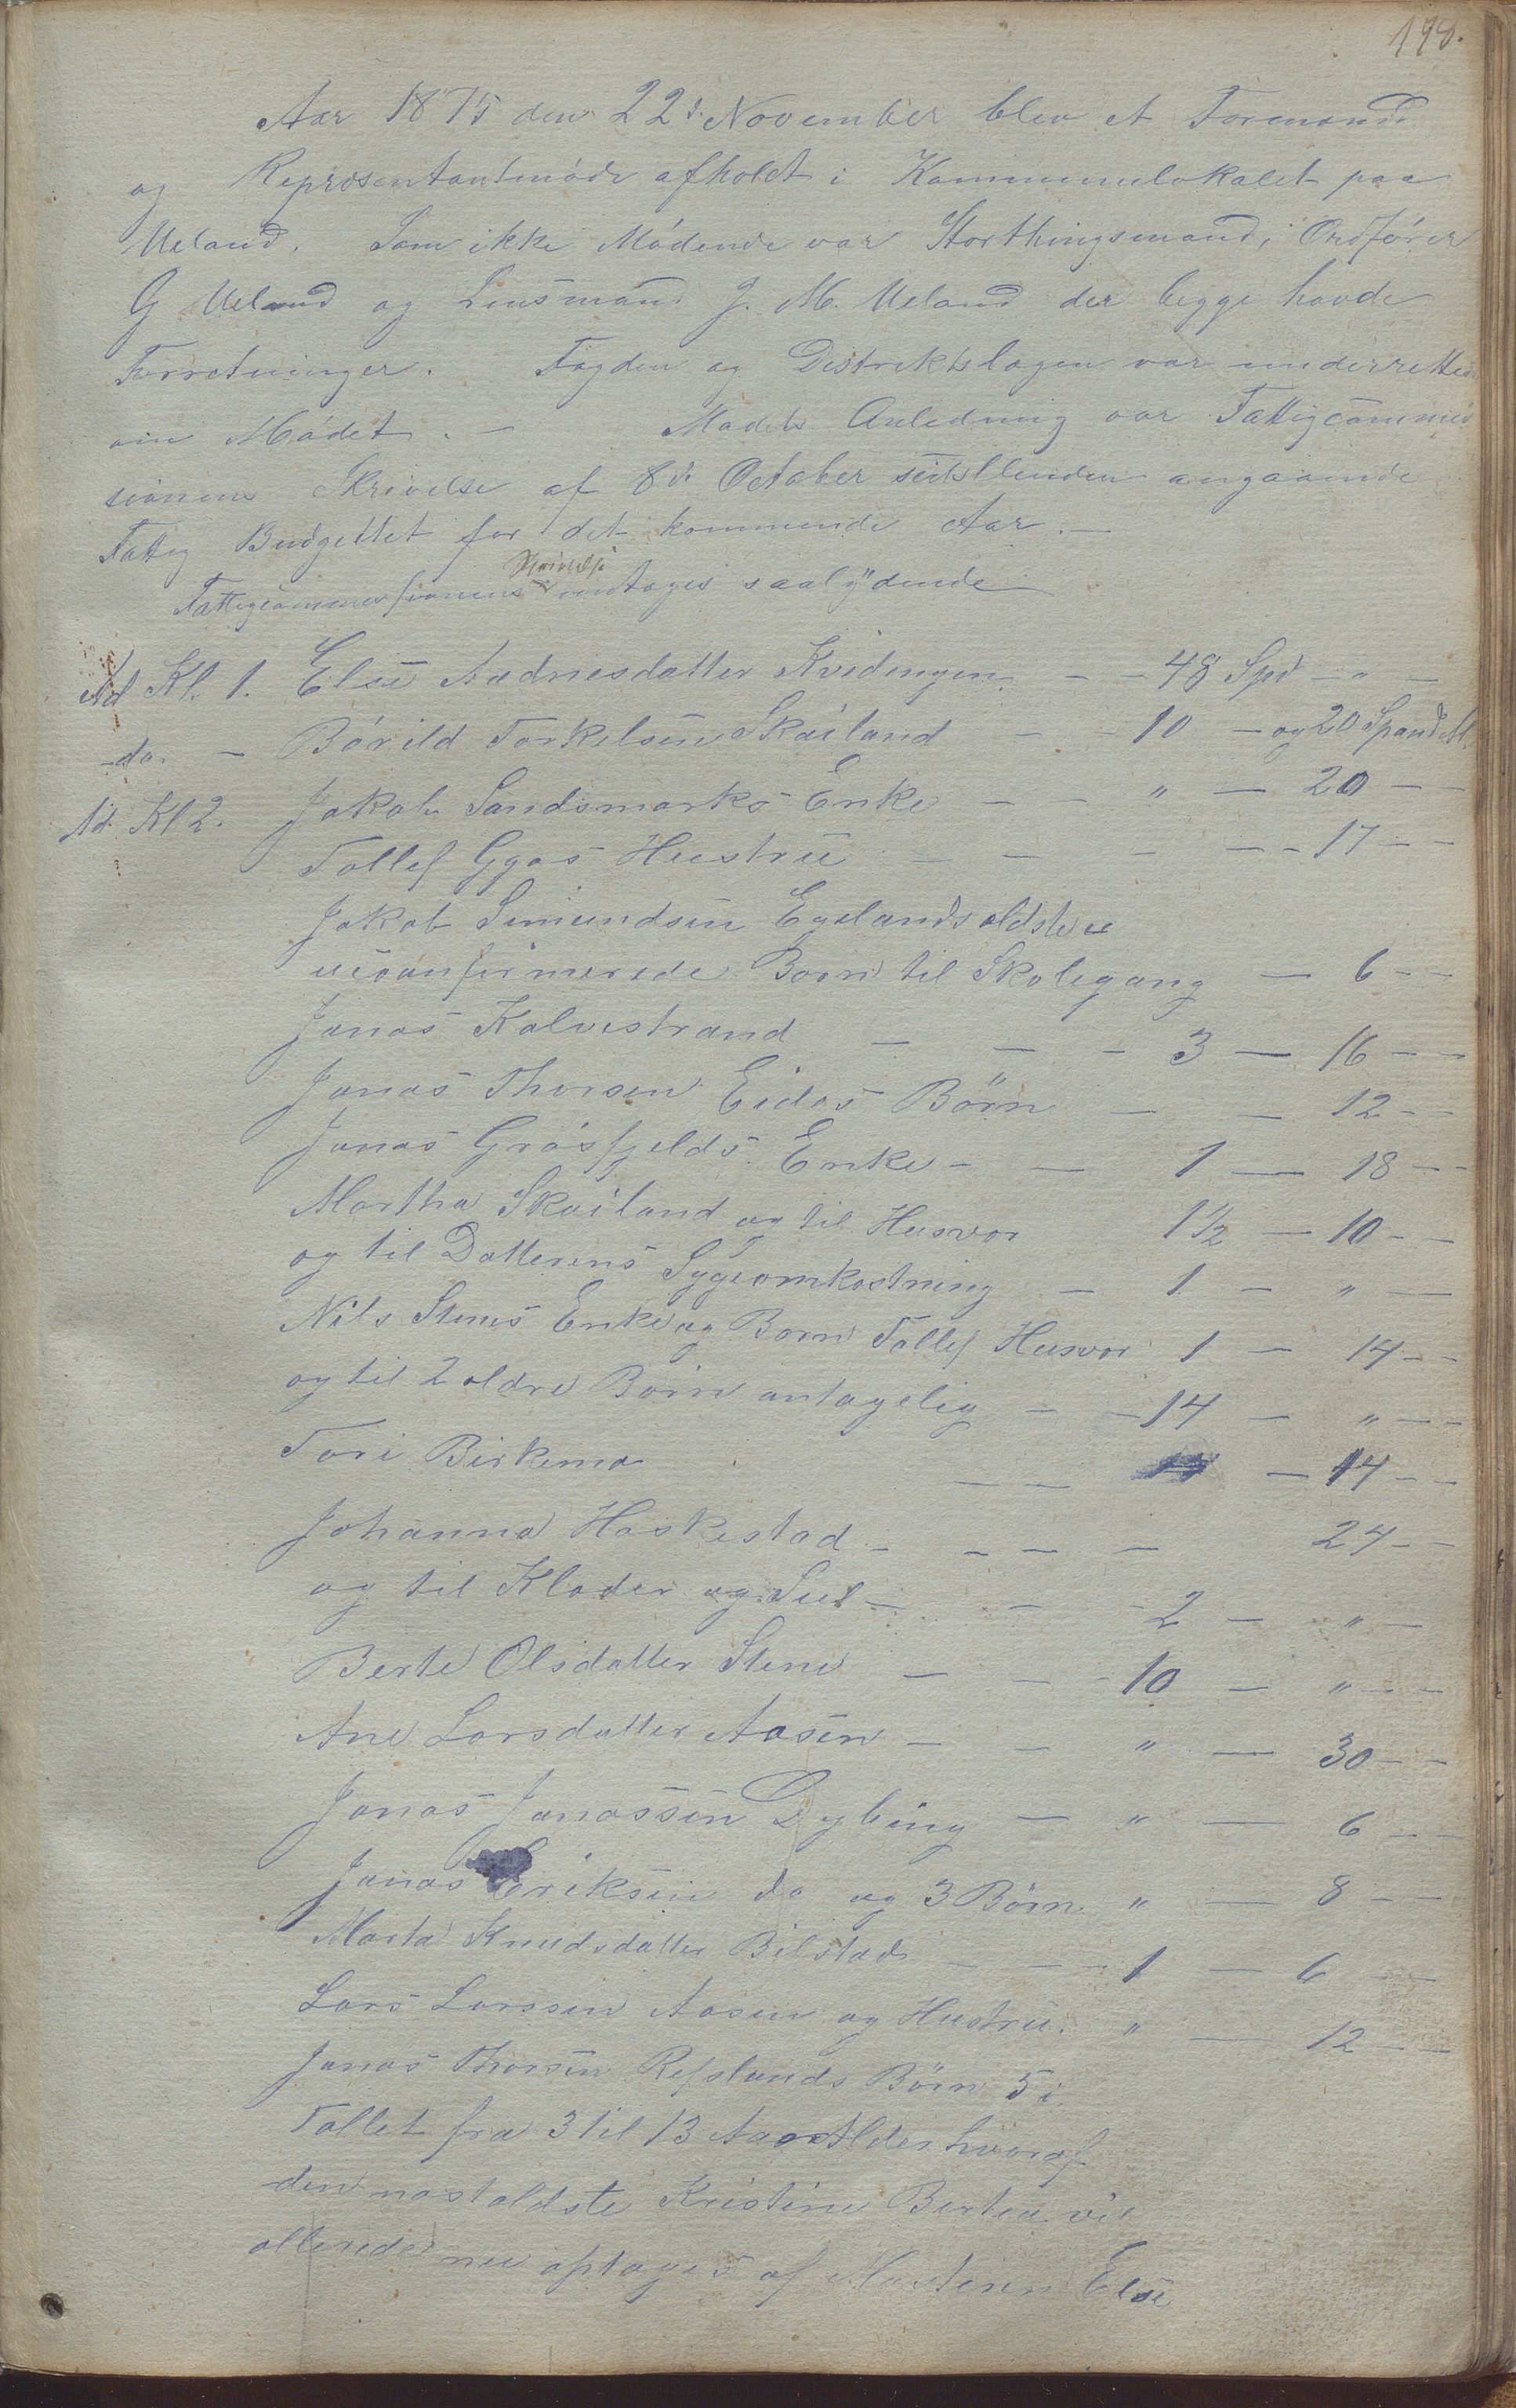 198.
Aar 1875 den 22d. November blev et Formand
og Repræsentantmøde afholdt i Kommunelokalet paa
Ueland. Som ikke Mødende var Storthingsmand, Ordfører
G Ueland og Lensmand J. M. Ueland der begge havde
Forretninger. Fogden og Distriktslægen var underrettede
om Mødet. – Mødets Anledning var Fattigcommis
sionens Skrivelse af 8de October sidstleden angaaende
Fattig Budgettet for det kommende Aar. –
Fattigcommissionens Skrivelse indtages saalydende
Ad Kl. 1. Else Aadnesdatter Kvidingen – – 48 Spd – " –
do. – Børild Torkelsen Skailand – – 10 – og 20 Spand M.
Ad. Kl 2. Jakob Sandsmarks Enke – – " – 20 – –
Tollef Gyas Hustru – – – – – 17 – –
Jakob Simundsen Egelands ældste
uconfirmerede Børn til Skolegang – 6 – –
Jonas Kalvestrand – – – 3 – 16 – –
Jonas Thorsen Eides Børn – – 12 – –
Jonas Gråsfjelds Enke – – 1 – 18 – –
Martha Skailand og til Husvær 1 1/2 – 10 – –
og til Datterens Sygeomkostning – 1 – " –
Nils Stenes Enke og Børn Tollef Husvær 1 – 14 – –
og til 2 ældre Børn antagelig – – 14 – " – –
Tori Birkemo – – – 14 – –
Johanna Haskestad – – – – 24 – –
og til Klæder og Sul – – – 2 – " –
Berte Olsdatter Stene – – – 10 – " – –
Ane Larsdatter Aasen – – " – 30 – –
Jonas Jonassen Dybing – " – 6 – –
Jonas Eriksen do og 3 Børn. " – 8 – –
Marta Knudsdatter Bilstad – – – 1 – 6 – –
Lars Larssen Aasen og Hustru. " – 12 – –
Jonas Thorsen Refslands Børn 5 i
Tallet fra 3 til 13 Aars Alder hvoraf
den næstældste Kristine Bertea vil
allerede nu optages af Mosteren Else